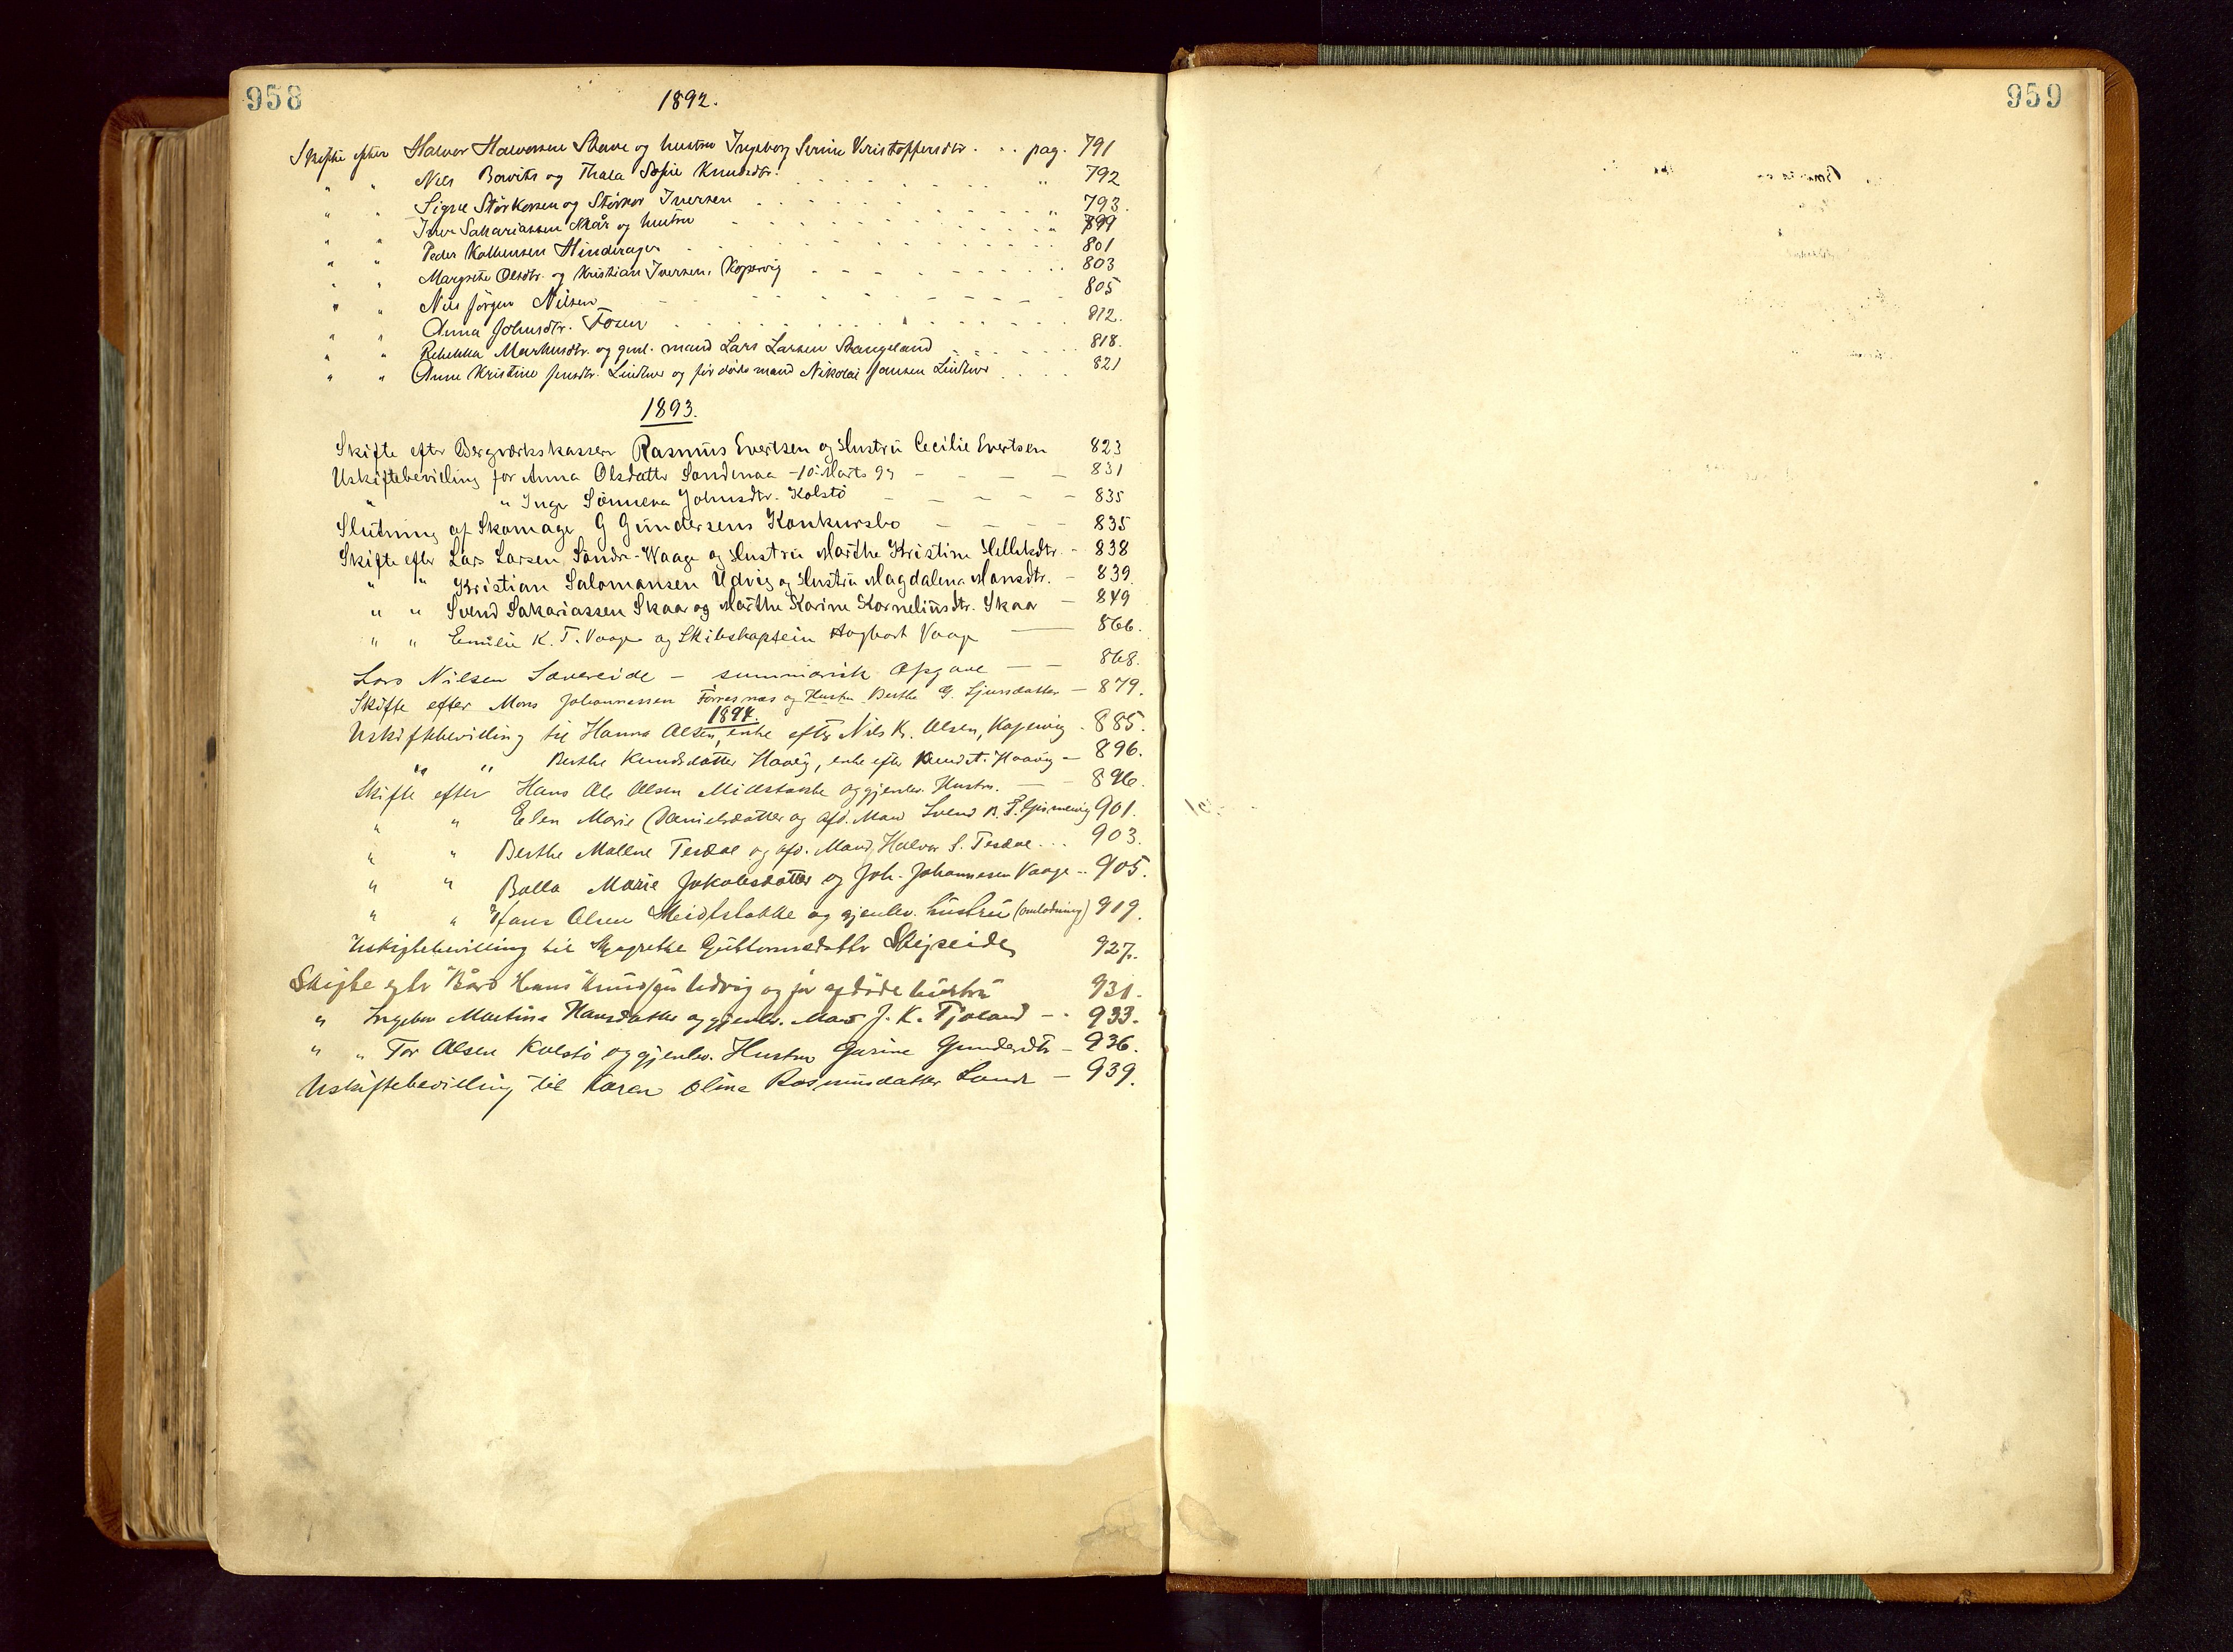 958
1892.
Skifte efter Halvor Halvorsen Skaae og hustru Ingeborg Serine Kristoffersdtr. . . pag. 791
" " Nils Bowitz og Thala Sofie Knudsdtr. " 792
" " Signe Störkersen og Störker Iversen 793.
" " Iver Sakariassen Skår og hustru " 799
" " Peder Kolbensen Hinderager 801
" " Margrete Olsdtr. og Kristian Iversen, Kopervig 803
" " Nils Jörgen Nilsen 805
" " Anna Johnsdtr. Fosen 812.
" " Rebekka Markusdtr. og gjenl. mand Lars Larsen Stangeland 818.
" " Anne Kristine Jensdtr. Lindtner og før døde mand Nikolai Jansen Lindtner 821
1893.
Skifte efter Bergværkskasserer Rasmus Evertsen og Hustru Cecilie Evertsen 823
Uskiftebevilling for Anna Olsdatter Sandenaa - 10: Marts 93 - - - - 831
" " Inger Sönneva Johnsdtr. Kolstö - - - - - 835
Slutning af Skomager G Gundersens Konkursbo - - - - 835
Skifte efter Lars Larsen Söndre-Waage og Hustru Marthe Kristine Helleksdtr. - 838
" " Kristian Salomansen Udvig og Hustru Magdalena Mansdtr. - 839.
" " Svend Sakariassen Skaar og Marthe Karine Korneliusdtr. Skaar - 849
" " Emilie K. T. Vaage og Skibskaptein Hagbart Vaage - 866.
Lars Nilsen Sævereide - summarisk Opgave - - 868.
Skifte efter Mons Johannessen Førresnæs og Hustru Berthe G. Sjursdatter - 879.
1894.
Uskiftebevilling til Hanna Olsen, enke efter Nils K. Olsen, Kopervig - 885.
" " Berthe Knudsdatter Haavig, enke efter Knud A. Haavig - 896.
Skifte efter Hans Ole Olsen Midtstokke og gjenlev. Hustru. - 896.
" " Elen Marie Danielsdatter og afd. Man Svend B. F. 901.
" " Berthe Malene Tesdal og afd. Mand Halvor S. Tesdal ... 903.
" " Bolla Marie Jakobsdatter og Joh. Johannesen Vaage .. 905.
" " Hans Olsen Meidtstokke og gjenlev. hustru (omlodning) 919.
Uskiftebevilling til Magrethe Guttormsdatter Skeiseide 927.
Skifte eftr Bård Hans Knudsen Udvig og før afdöde hustru 931.
" Ingebor Martine Hansdatter og gjenlev. Man J. K. Tjoland - . 933.
" " Tor Olsen Kolstö og gjenlev. Hustru Gurine Gundersdtr - 936.
Uskiftebevilling til Karen Oline Rasmusdatter Sund - 939.
959